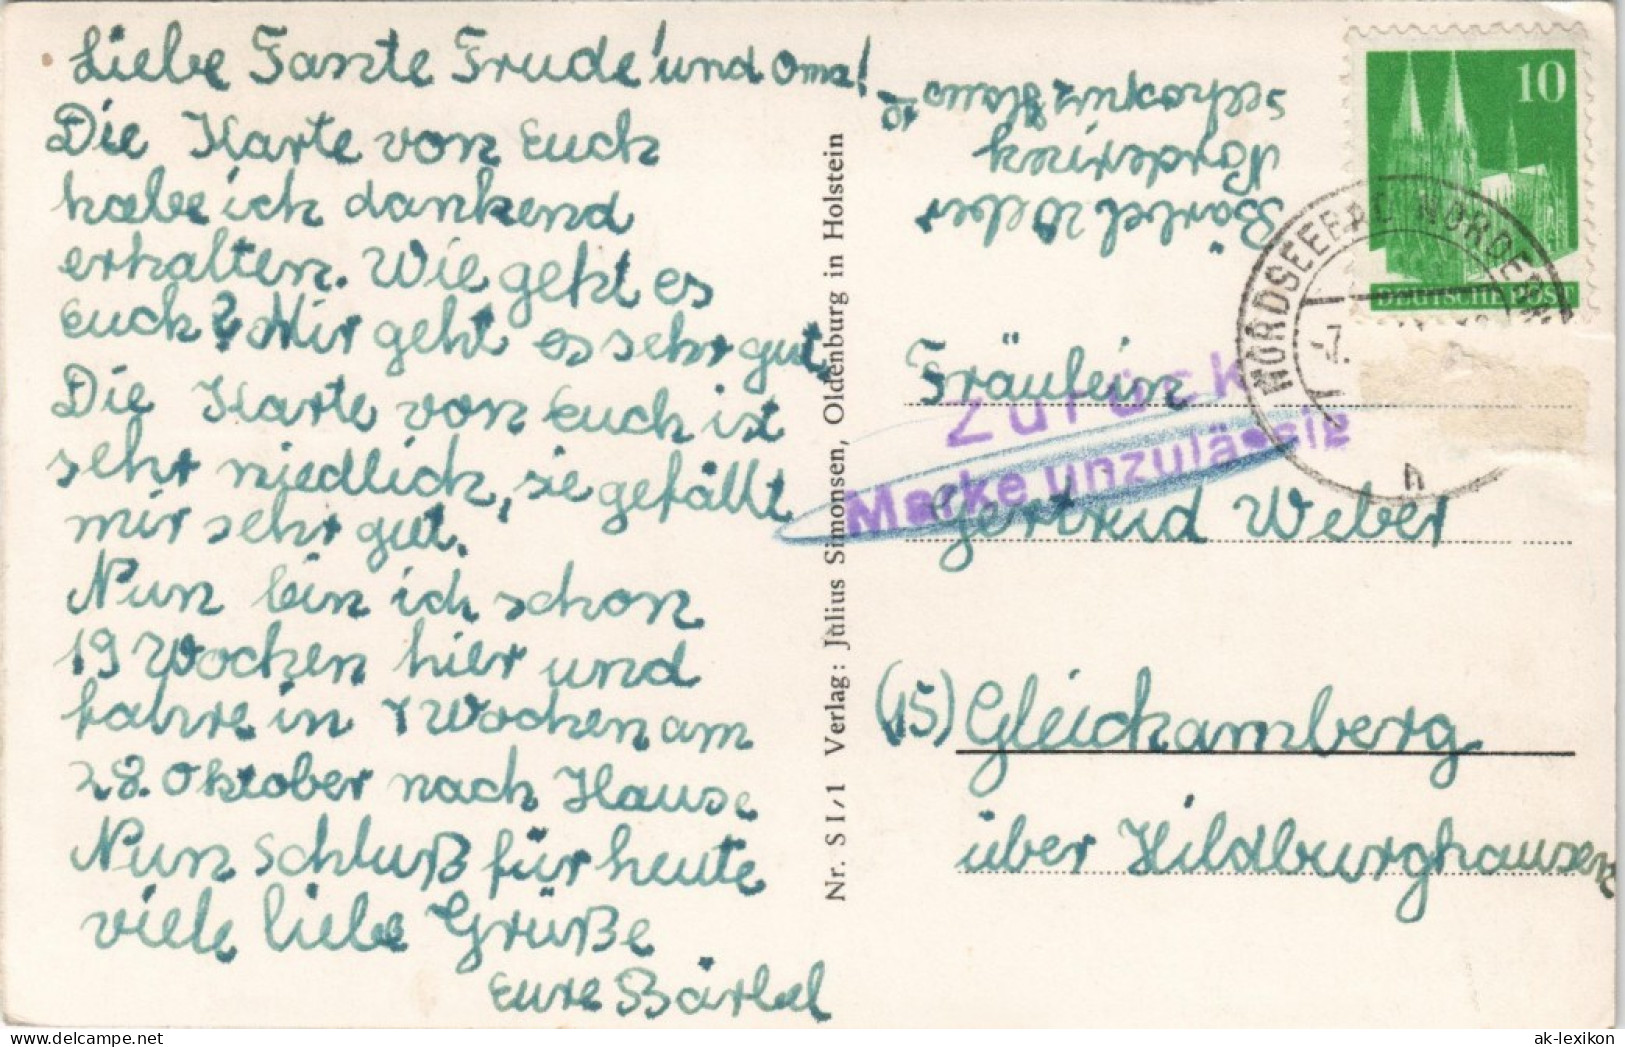 Liebe Tante Trude! und Oma!
Die Karte von Euch
habe ich dankend
erhalten. Wie geht es
Euch? Mir geht es sehr gut.
Die Karte von Euch ist
sehr niedlich, sie gefällt
mir sehr gut.
Nun bin ich schon
19 Wochen hier und
fahre in 1 Wochen am
28. Oktober nach Hause
Nun Schluß für heute
viele liebe Grüße
Eure Bärbel
Nr. S I/1 Verlag: Julius Simonsen, Oldenburg in Holstein
Bärbel Weber
Norderney
10
DEUTSCHE POST
NORDSEEBAD NORDERN
-7.
h
Zurück
Marke unzulässig
Fräulein
Gertrud Weber
(15) Gleichamberg
über Hildburghausen
ak-lexikon